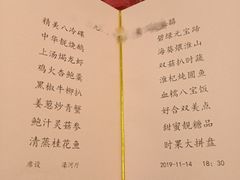 精美八冷碟
中华靓烧鹅
上汤焗龙虾
鸡火杏鲍羹
黑椒牛柳扒
姜葱炒青蟹
鲍汁灵菇参
清蒸桂花鱼
席设
碧绿元宝蹄
海葵煨淮山
双菇扒时蔬
淮杞炖圆鱼
血糯八宝饭
好合双美点
甜蜜靓糖品
时果大拼盘
2019-11-14 18:30